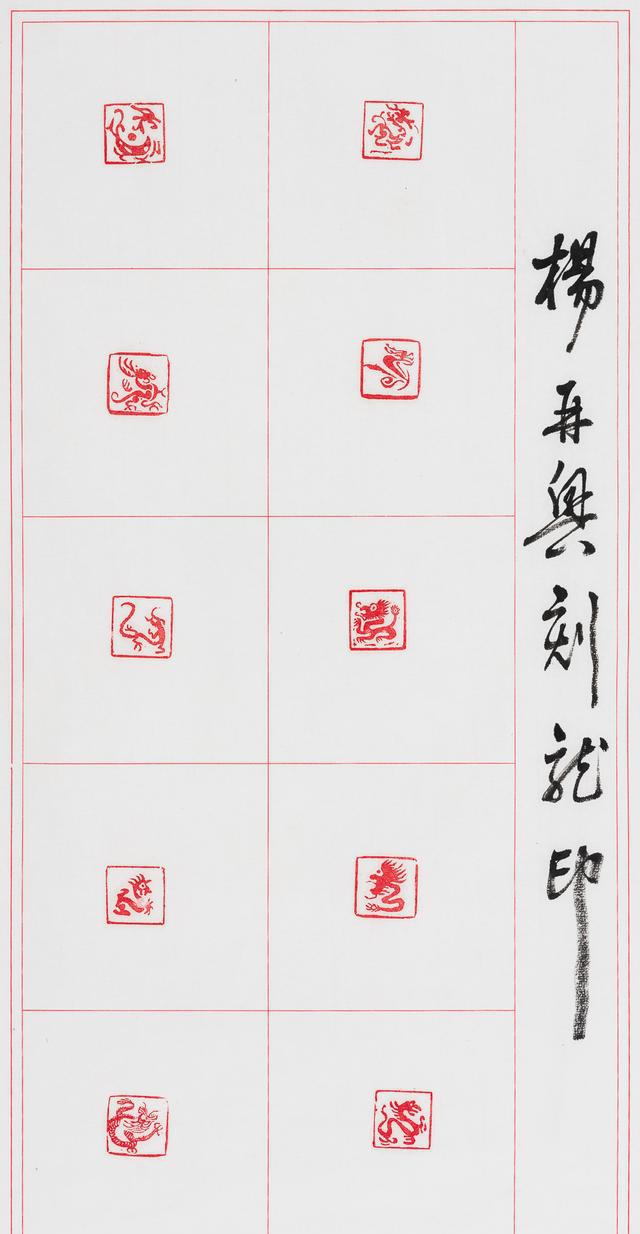 楊再興刻龍印